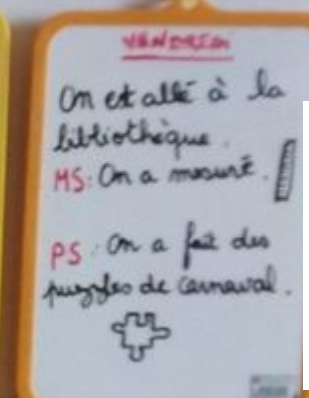 VENDREDI
On est allé à la
bibliothèque.
MS: On a mesuré.
PS: On a fait des
puzzles de carnaval.